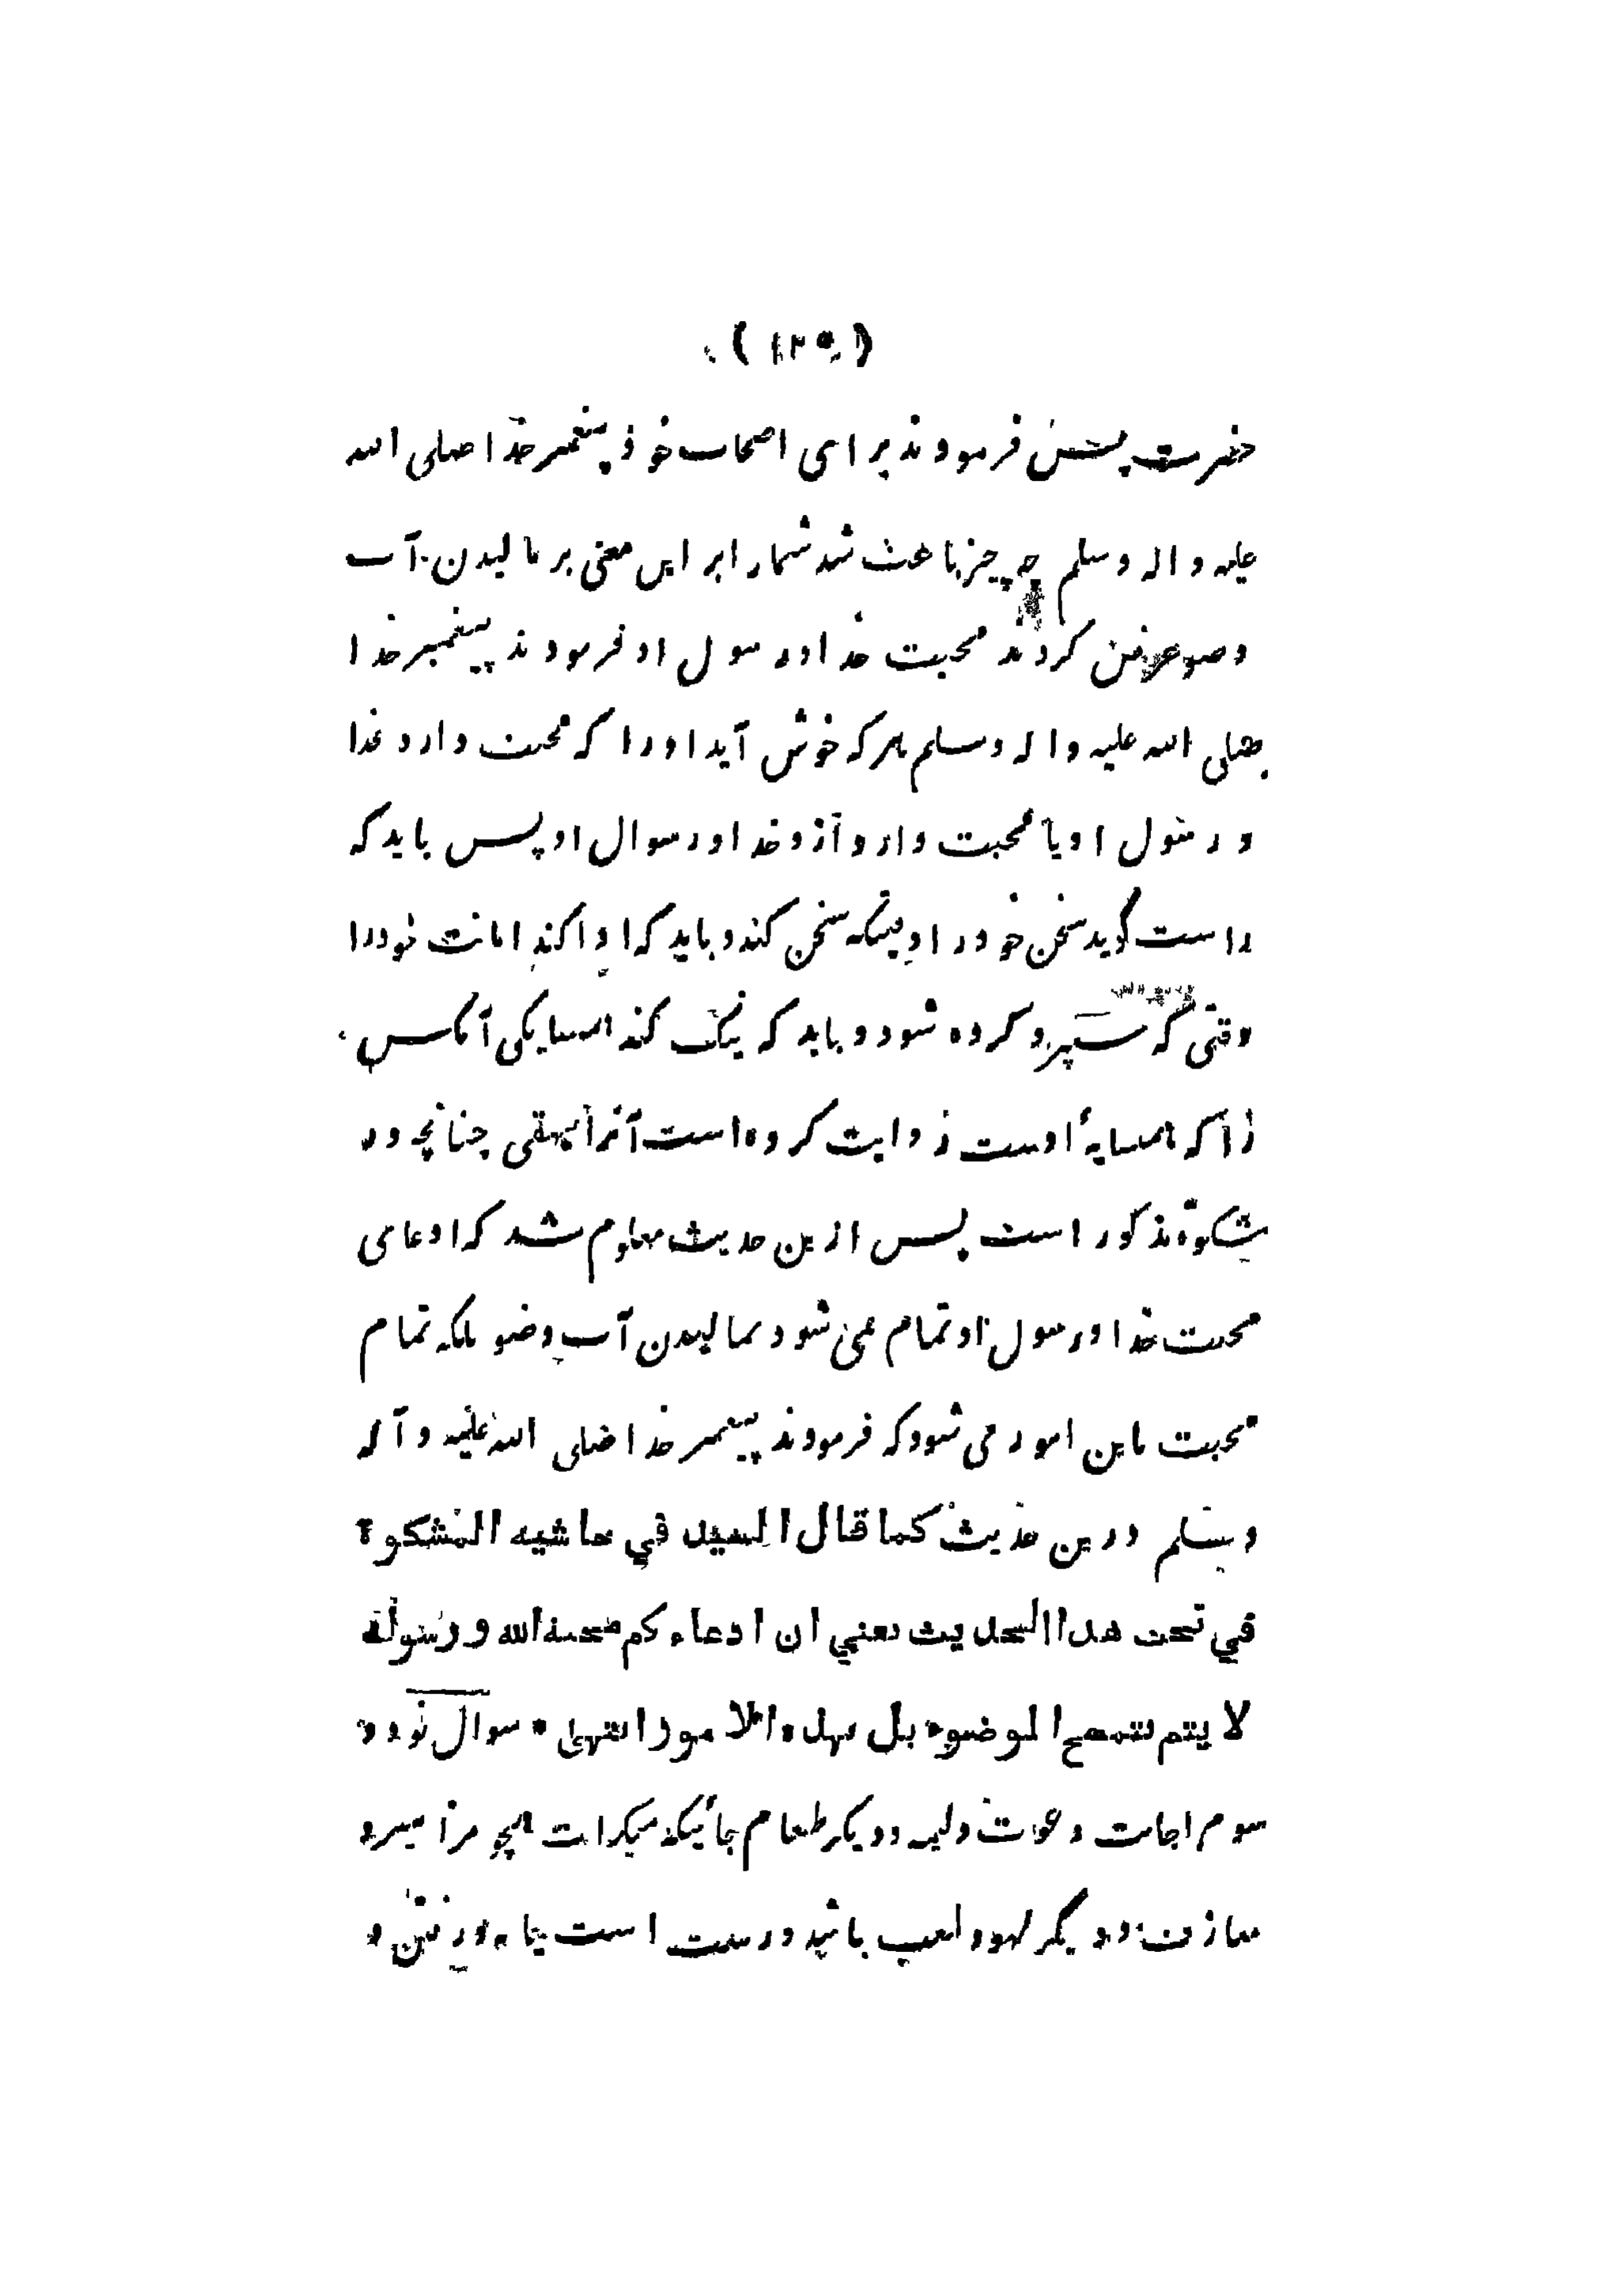 (۱۲۵)
حضرت پس فرمودند برای اصحاب خود پیغمبر خدا صلی الله
علیه واله وسلم چه چیز باعث شد شمارا بر این معنی بر مالیدن آب
وضو عرض کردند محبت خدا ورسول او فرمودند پیغمبر خدا
صلی الله علیه واله وسلم هرکه خوش آید اورا که محبت دارد خدا
ورسول او یا محبت دارد ازو خدا ورسوال او پس باید که
راست گوید سخن خود را وقتیکه سخن کند و باید که ادا کند امانت خودرا
وقتی که سپرد کرده شود و باید که نیک کند همسایگی آنکس
را که همسایۀ اوست روایت کرده است آنرا بیهقی چنانچه در
مشکوة مذکور است پس ازین حدیث معلوم شد که ادعای
محبت خدا ورسول او تمام نمی شود بمالیدن آب وضو بلکه تمام
محبت باین امور می شود که فرمودند پیغمبر خدا صلی الله علیه وآله
وسلم درین حدیث کما قال السید في حاشیه المشکوة
في تحت هذا الحدیث یعني ان ادعاءکم محبة الله ورسوله
لا یتم بتمسح الوضوء بل بهذه الامور انتهی * سوال نود و
سوم اجابت دعوت ولیمه و دیگر طعام جائیکه منکرات همچو مزامیر و
معازف و دیگر لهو و لعب باشد درست است یا نه ورفتن و